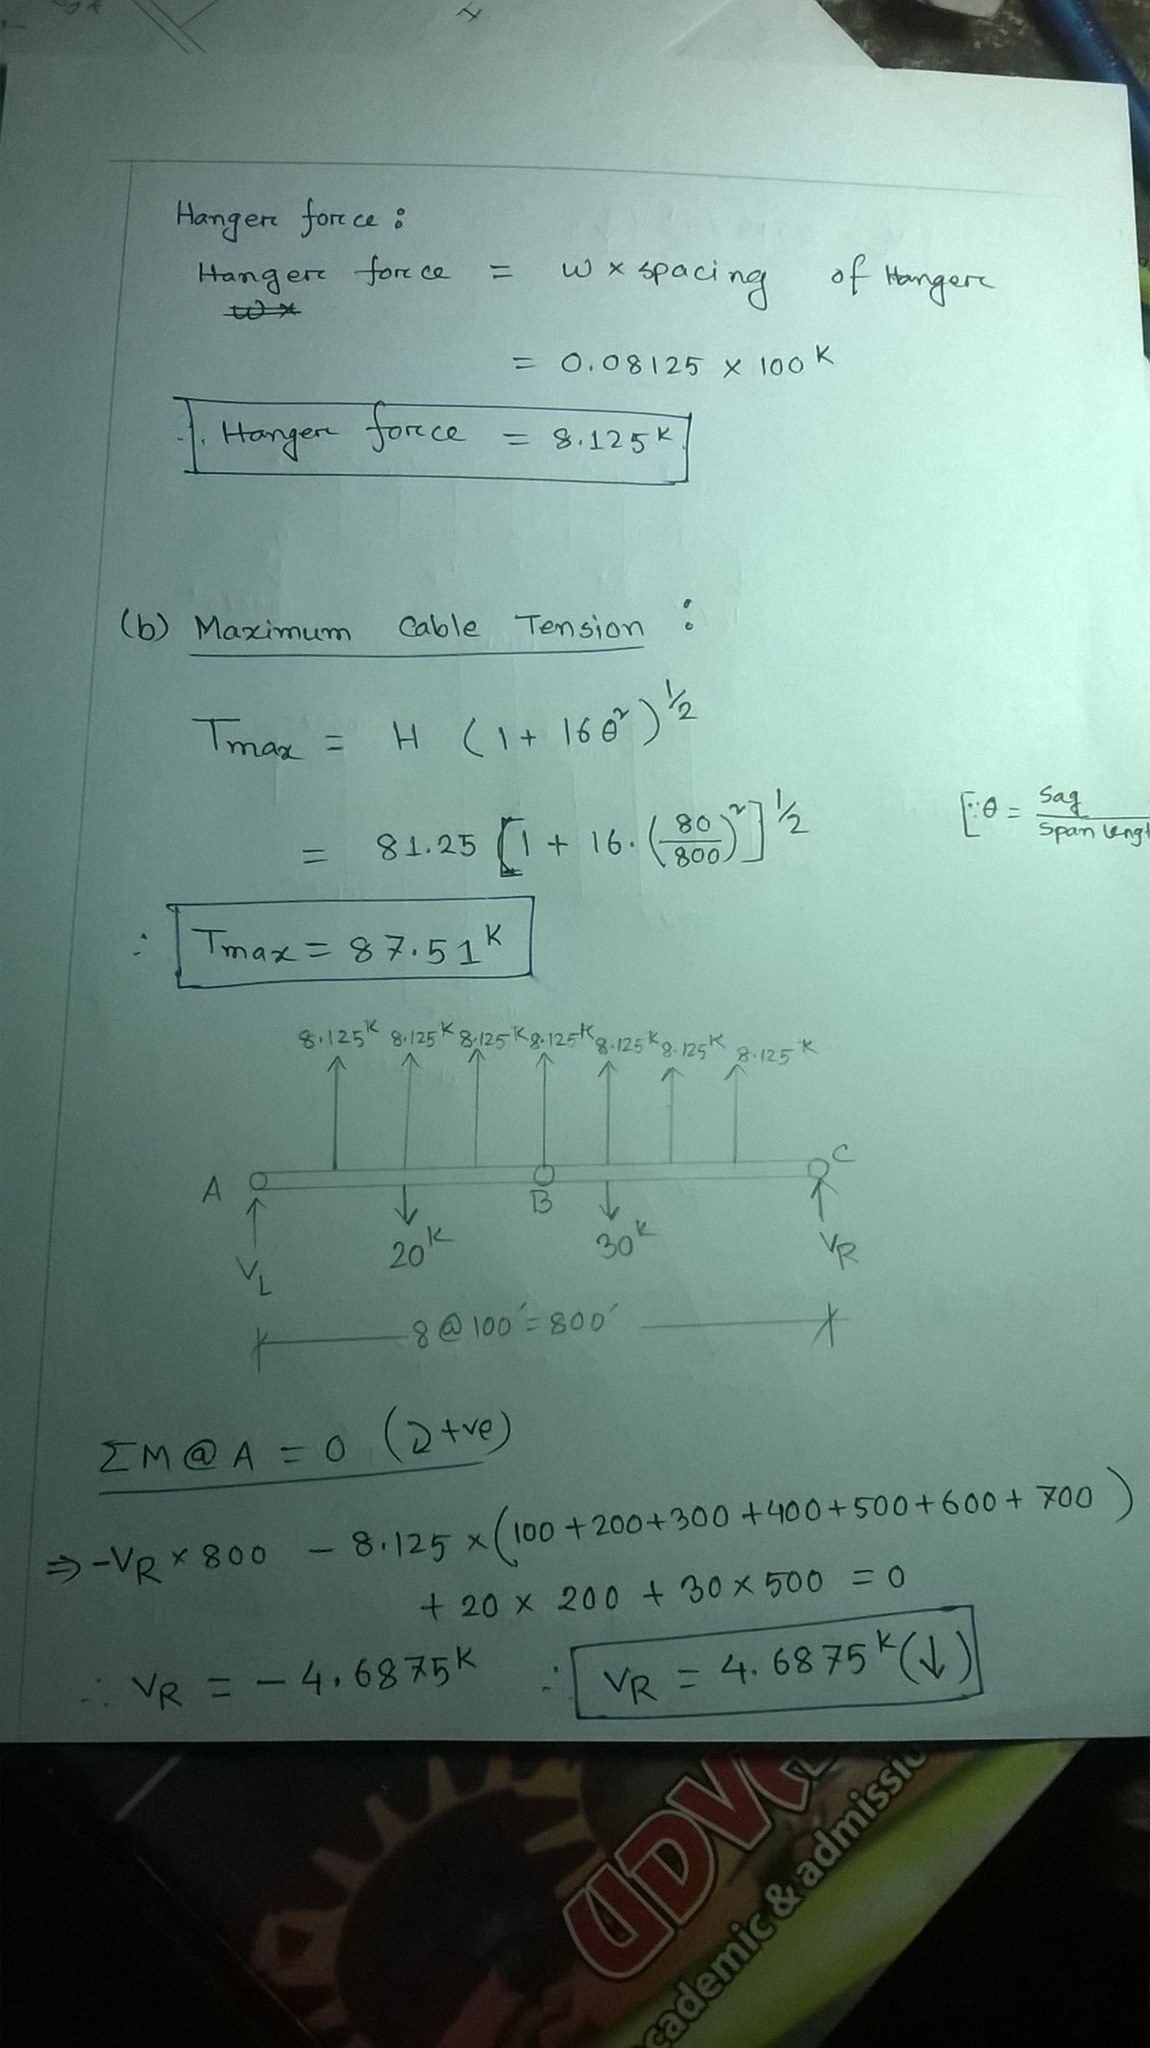 Hanger force :
Hanger force = w x spacing of Hanger
w x
= 0.08125 x 100 K
∴ Hanger force = 8.125 K
(b) Maximum Cable Tension :
Tmax = H (1 + 16θ²)^1/2
= 81.25 [1 + 16. (80/800)²]^1/2 [∵ θ = Sag/Span Lengt
∴ Tmax = 87.51 K
8.125 K 8.125 K 8.125 K 8.125 K 8.125 K 8.125 K 8.125 K
A B C
VL 20 K 30 K VR
8 @ 100' = 800'
ΣM @ A = 0 (↻ +ve)
⇒ -VR x 800 - 8.125 x (100 + 200 + 300 + 400 + 500 + 600 + 700)
+ 20 x 200 + 30 x 500 = 0
∴ VR = - 4.6875 K ∴ VR = 4.6875 K (↓)
UDV
cademic & admissio